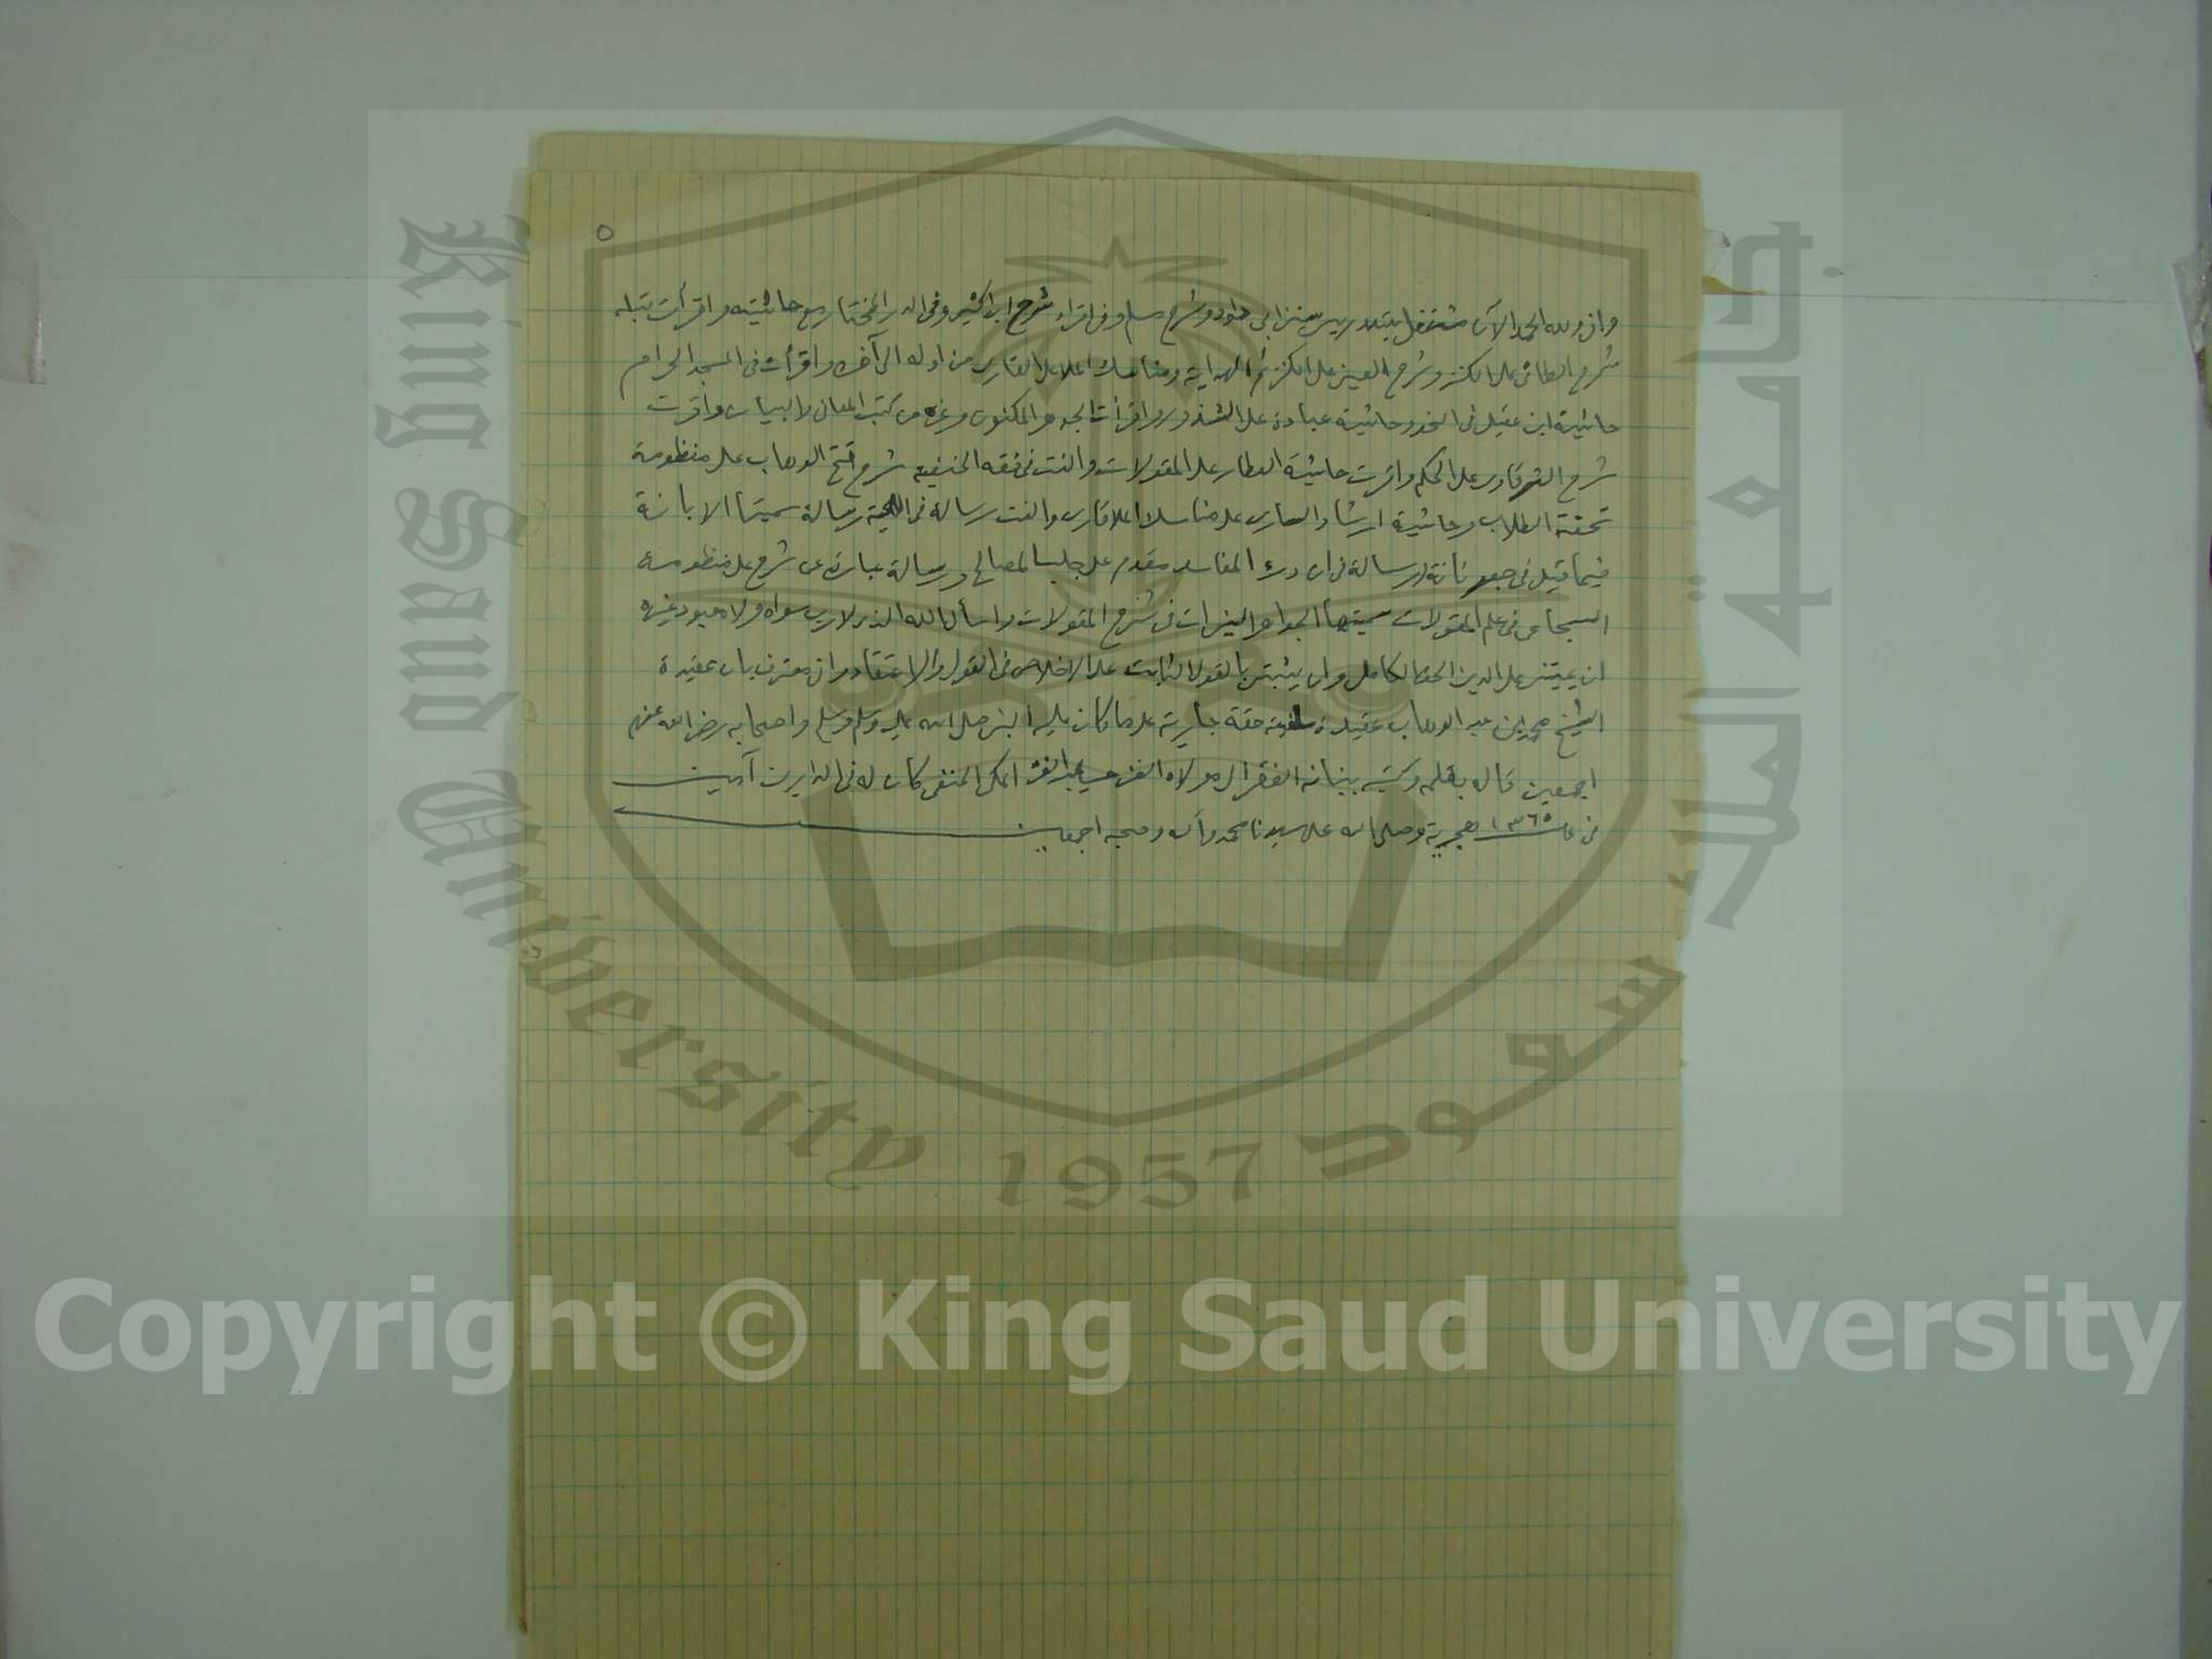 ٥
واني ولله الحمد الآن مشتغل بتدريس سنن ابي داود وشرح مسلم وفي اقراء شرح ابن كثير وفي الدر المختار مع حاشيته واقرأت قبله
شرح الطائي على الكنز وشرح العيني على الكنز ثم الهداية ومناسك الملا علي القاري من اوله الى آخره واقرأت في المسجد الحرام
حاشية ابن عقيل في النحو وحاشية عبادة على الشذور واقرأت الجوهر المكنون وغيره من كتب المعاني والبيان واقرت
شرح الشرقاوي على الحكم واقرت حاشية العطار على المقولات والفت في فقه الحنفية شرح فتح الوهاب على منظومة
تحفة الطلاب وحاشية ارشاد الساري على مناسك الملا قاري والفت رسالة في اللحية رسالة سميتها الابانة
فيما قيل في رسالة في ان درء المفاسد مقدم على جلب المصالح ورسالة عبارة عن شرح على منظومة
السجاعي في علم المقولات سميتها الجواهر النيرات في شرح المقولات واسأل الله الذي لا رب سواه ولا معبود غيره
ان يميتني على الدين الحق الكامل وان يثبتني بالقول الثابت على الاخلاص في القول والاعتقاد واني معترف بان عقيدة
الشيخ محمد بن عبد الوهاب عقيدة سلفية حقة جارية على ما كان عليه النبي صلى الله عليه وسلم وسلم واصحابه رضي الله عنهم
اجمعين قاله بفمه وكتبه ببنانه الفقير الى مولاه الغني حسين عبد الغني المكي الحنفي كان له في الدارين آمين
في عام ١٣٦٥ هجرية وصلى الله على سيدنا محمد وآله وصحبه اجمعين
King Saud University 1957
جامعة الملك سعود
Copyright © King Saud University